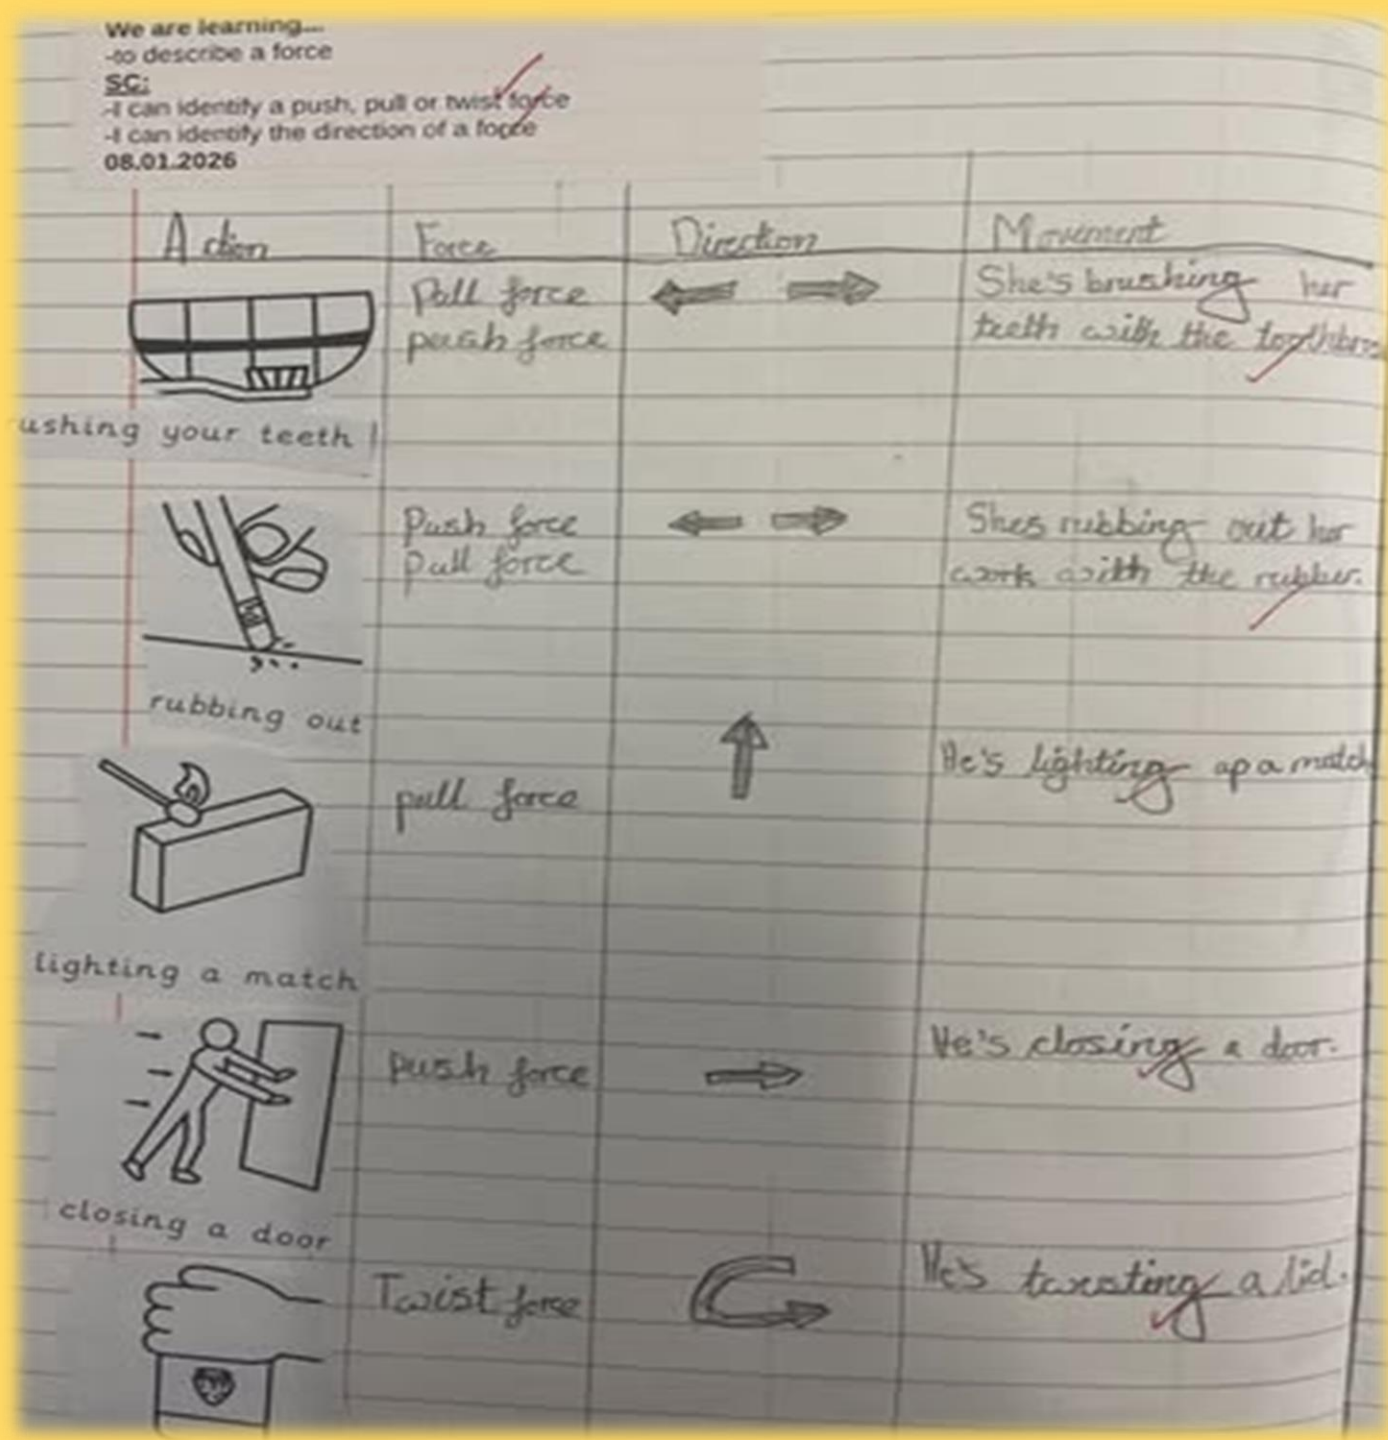 We are learning...
-to describe a force
SC:
-I can identify a push, pull or twist force
-I can identify the direction of a force
08.01.2026
Action Force Direction Movement
Pull force
push force
She's brushing her
teeth with the
ushing your teeth
Push force
Pull force
Shes rubbing out her
work with the rubber.
rubbing out
pull force
He's lighting up a match
lighting a match
push force
He's closing a door.
closing a door
Twist force
He's twisting a lid.